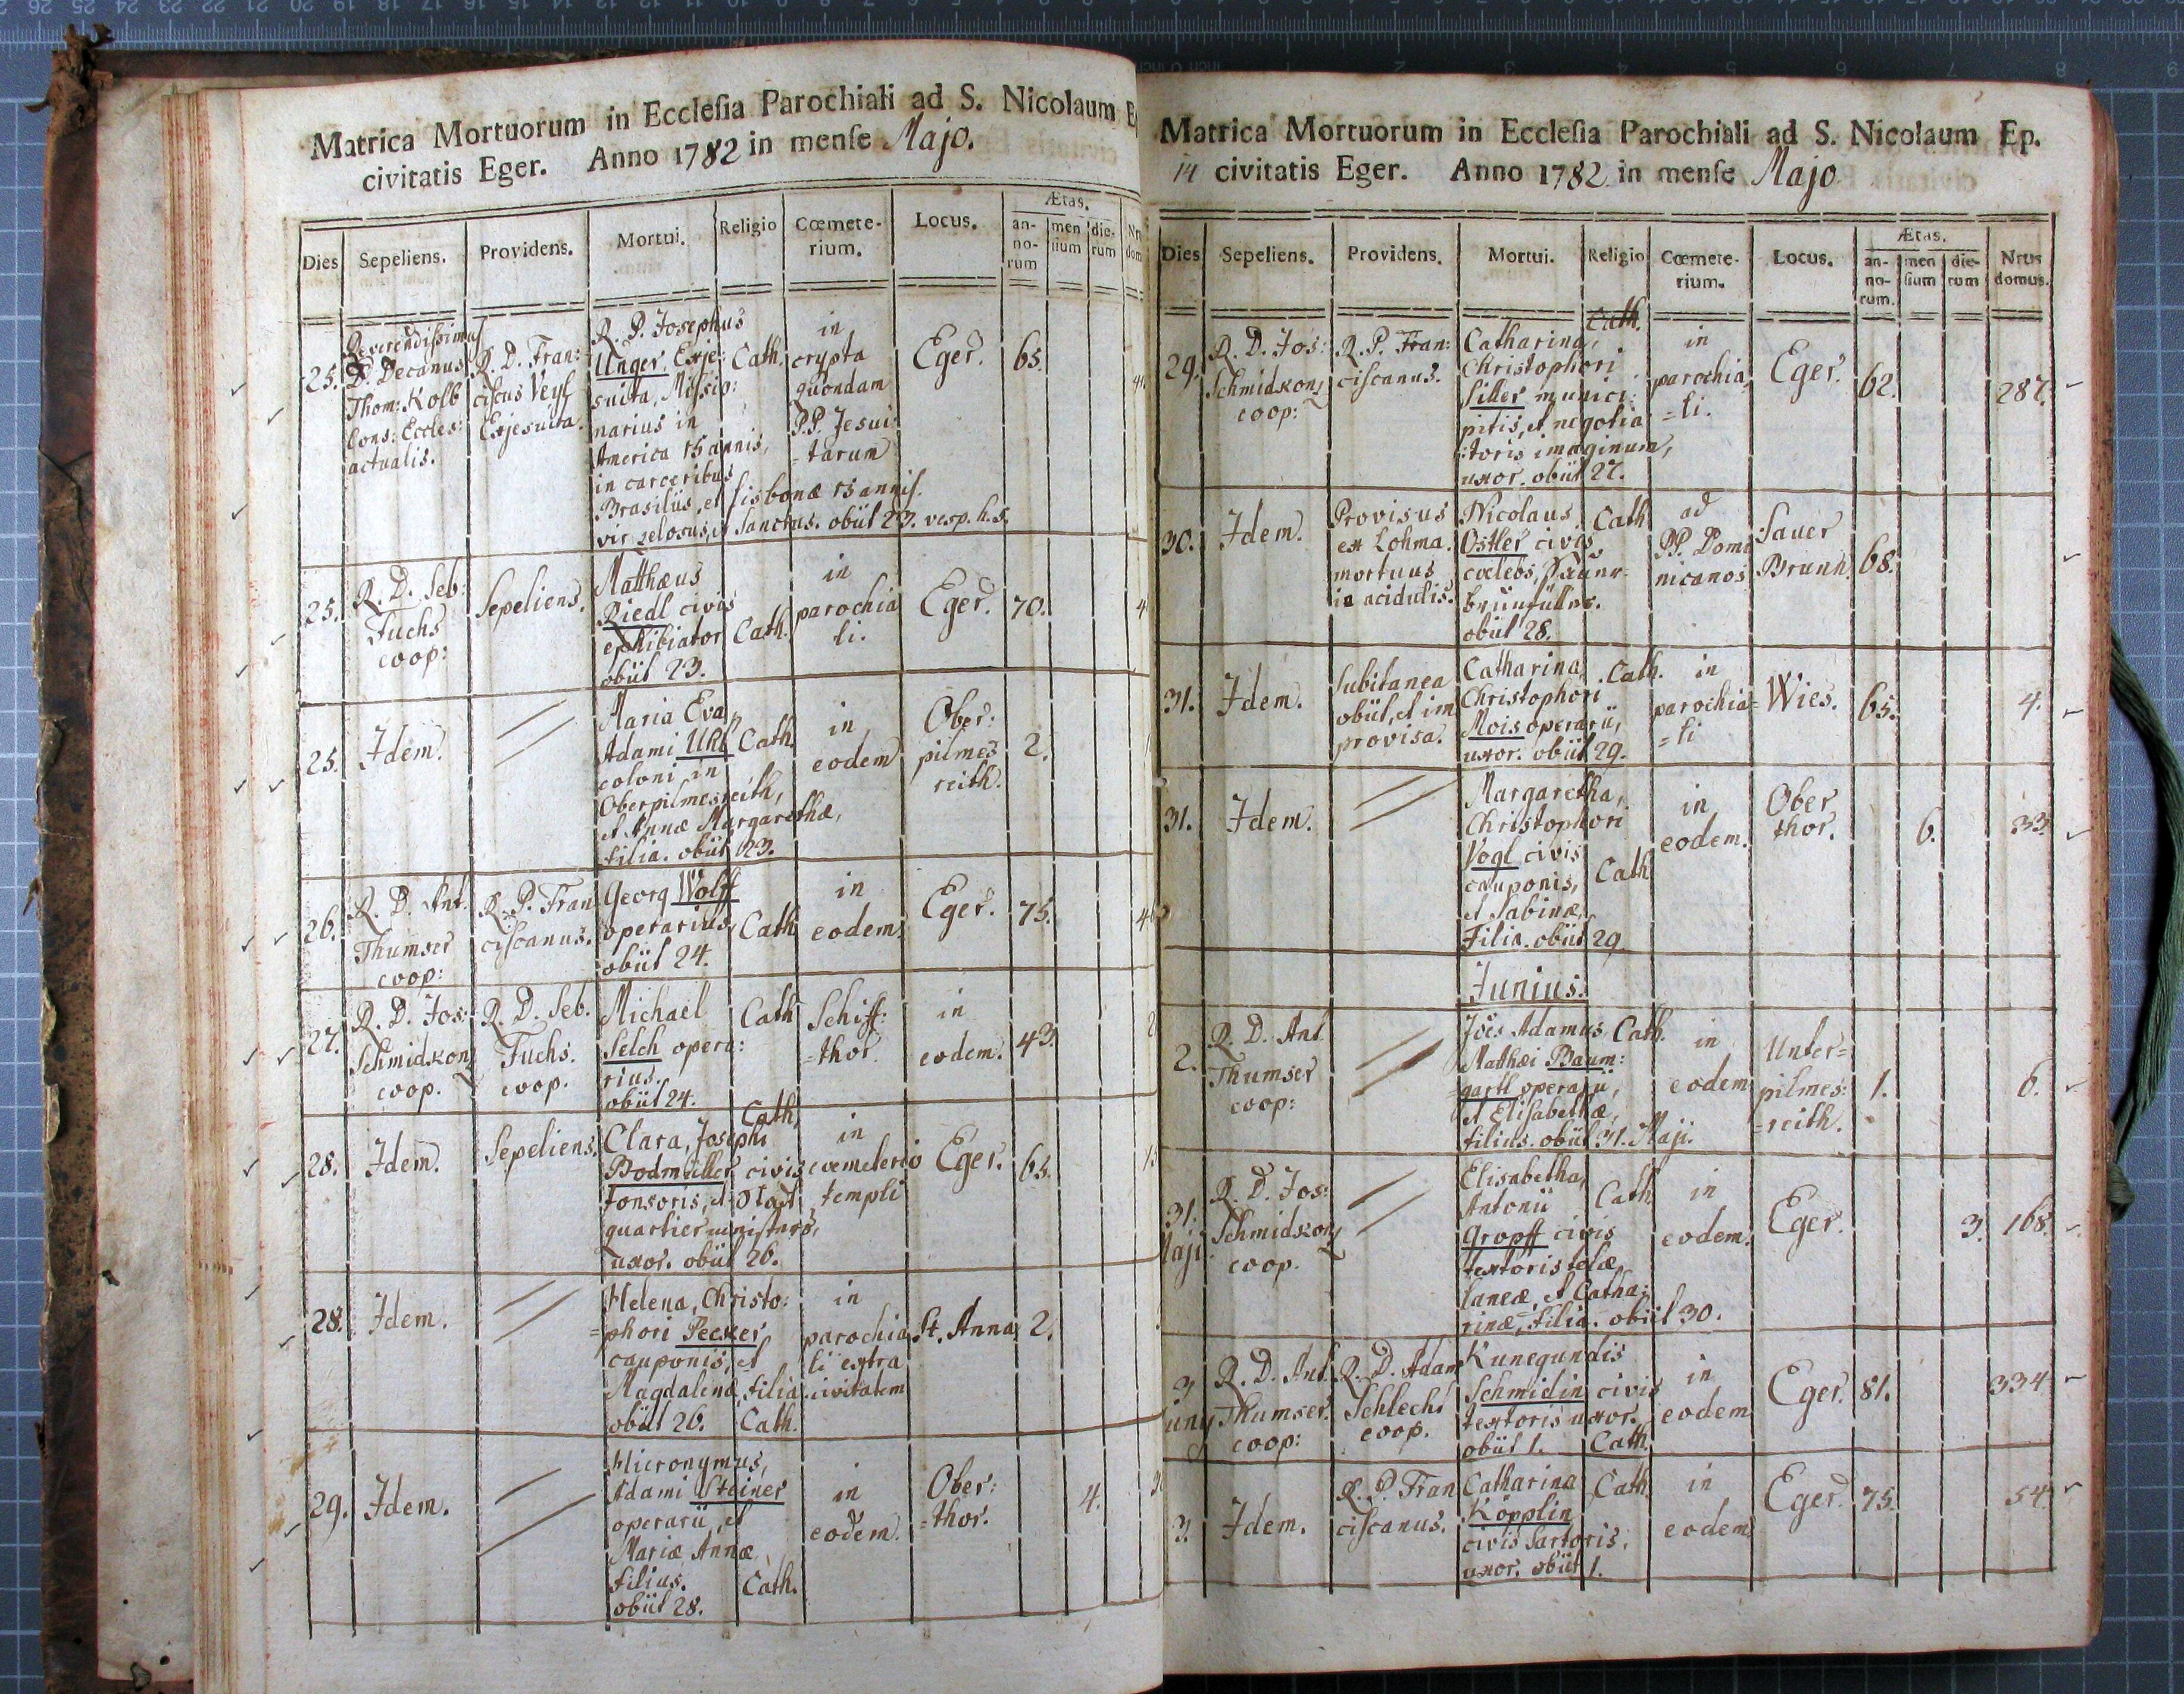 Matrica Mortuorum in Ecclesia Parochiali ad S. Nicolaum E
civitatis Eger. Anno 1782 in mense Majo.
Dies Sepeliens. Providens. Mortui. Religio Cœmete-rium. Locus. Ætas. an-no-rum men sium die-rum Nr dom
25. Reverendissimus D. Decanus Thom: Kolb Cons: Eccles: actualis.
R. D. Fran: ciscus Veyl Exjesuita.
R. P. Josephus
Unger, Exje:
suita, Missio:
narius in
America 15 annis,
in carceribus
Brasiliis, et Lisbonæ 15 annis.
vir zelosus, et Sanctus. obiit 23. vesp. h. 5.
Cath. in crypta quondam PP. Jesui =tarum
Eger. 65.
25. R. D. Seb: Fuchs coop:
Sepeliens.
Matthæus
Riedl civis
obiit 23.
Cath. in parochia li.
Eger. 70.
25. Idem.
Maria Eva,
Adami Uhl
coloni in
Oberpilmesreith,
et Annæ Margarethæ,
filia. obiit 23.
Cath. in eodem
Ober: pilmes reith. 2.
26. R. D. Ant. Thumser coop:
R. P. Fran ciscanus.
Georg Wolff
operarius,
obiit 24.
Cath in eodem.
Eger. 75.
27. R. D. Jos: Schmidkonz coop.
R. D. Seb. Fuchs. coop.
Michael
Selch opera:
rius.
obiit 24.
Cath Schiff: =thor.
in eodem. 43.
28. Idem.
Sepeliens.
Clara, Josephi
Bodmüller civis
tonsoris, et Stadt
uxor. obiit 26.
Cath, in cœmeterio templi
Eger. 65.
28. Idem.
Helena, Christo:
=phori Pecker
cauponis, et
Magdalenæ, filia.
obiit 26. Cath.
in parochia li extra civitatem
St. Anna 2.
29. Idem.
Hieronymus,
Adami Steiner
operarii, et
Mariæ Annæ,
filius.
obiit 28.
Cath.
in eodem.
Ober: =thor. 4.
Matrica Mortuorum in Ecclesia Parochiali ad S. Nicolaum Ep.
14 civitatis Eger. Anno 1782 in mense Majo
Dies Sepeliens. Providens. Mortui. Religio Cœmete-rium. Locus. Ætas. an-no-rum. men sium die-rum Nrus domus.
29. R. D. Jos: Schmidkonz coop:
R. P. Fran: ciscanus.
Catharina,
Christophori
Siller munici:
pitis, et negotia
:toris imaginum,
uxor. obiit 27.
Cath. in parochia =li.
Eger. 62. 287.
30. Idem.
Provisus ex Lohma. mortuus in acidulis.
Nicolaus
Ostler civis
cœlebs,
obiit 28.
Cath ad PP. Domi nicanos
Sauer Brunn. 68.
31. Idem.
Subitanea obiit, et im provisa.
Catharina,
Christophori
Mois operarii,
uxor. obiit 29.
Cath. in parochia= =li
Wies. 65. 4.
31. Idem.
Margaretha,
Christophori
Vogl civis
cauponis,
et Sabinæ,
Filia. obiit 29
Cath in eodem.
Ober thor. 6. 33.
Junius.
2. R. D. Ant. Thumser coop:
Jões Adamus
Mathæi Baum:
=gartl operarii,
et Elisabethæ,
filius. obiit 31. Maji.
Cath. in eodem
Unter= pilmes: =reith. 1. 6.
31. Maji R. D. Jos: Schmidkonz coop.
Elisabetha,
Antonii
Gropff civis
textoris telæ
laneæ, et Catha:
rinæ, Filia. obiit 30.
Cath. in eodem.
Eger. 3. 168.
3. Juny R. D. Ant. Thumser. coop:
R. D. Adam Schlecht coop.
Kunegundis
Schmidin civis
textoris uxor.
obiit 1. Cath.
in eodem
Eger. 81. 334
3. Idem.
R. P. Fran ciscanus.
Catharina
Köpplin
civis Sartoris,
uxor. obiit 1.
Cath. in eodem
Eger. 75. 54.